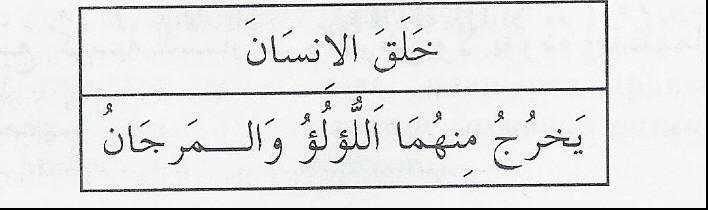 خَلَقَ الانسَانَ
يَخرُجُ مِنهُمَا اَللُّؤلُؤُ وَالـــمَرجَانُ